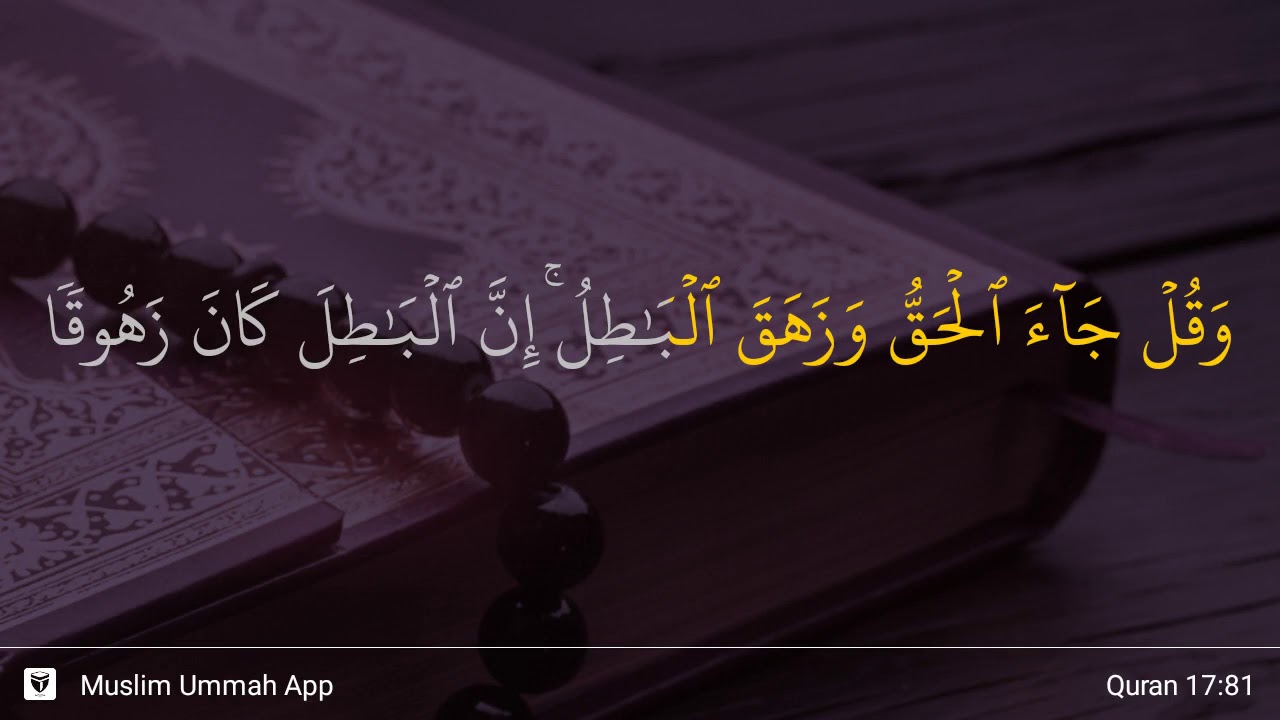 وَقُلْ جَآءَ ٱلْحَقُّ وَزَهَقَ ٱلْبَـٰطِلُ ۚ إِنَّ ٱلْبَـٰطِلَ كَانَ زَهُوقًا
Muslim Ummah App
Quran 17:81